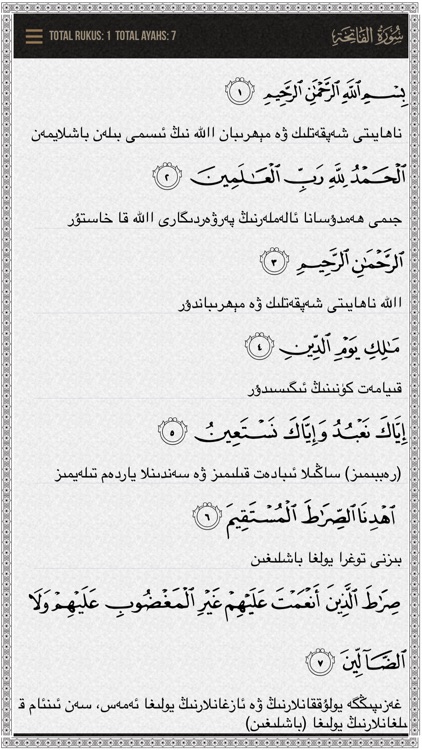 TOTAL RUKUS: 1 TOTAL AYAHS: 7 سُورَةُ الفَاتِحَةِ
بِسْمِ ٱللَّهِ ٱلرَّحْمَٰنِ ٱلرَّحِيمِ ١
ناھايىتى شەپقەتلىك ۋە مېھرىبان االله نىڭ ئىسمى بىلەن باشلايمەن
ٱلْحَمْدُ لِلَّهِ رَبِّ ٱلْعَـٰلَمِينَ ٢
جىمى ھەمدۇسانا ئالەملەرنىڭ پەرۋەردىگارى االله قا خاستۇر
ٱلرَّحْمَٰنِ ٱلرَّحِيمِ ٣
االله ناھايىتى شەپقەتلىك ۋە مېھرىباندۇر
مَـٰلِكِ يَوْمِ ٱلدِّينِ ٤
قىيامەت كۈنىنىڭ ئىگىسىدۇر
إِيَّاكَ نَعْبُدُ وَإِيَّاكَ نَسْتَعِينُ ٥
(رەببىمىز) ساڭىلا ئىبادەت قىلىمىز ۋە سەندىنلا ياردەم تىلەيمىز
ٱهْدِنَا ٱلصِّرَٰطَ ٱلْمُسْتَقِيمَ ٦
بىزنى توغرا يولغا باشلىغىن
صِرَٰطَ ٱلَّذِينَ أَنْعَمْتَ عَلَيْهِمْ غَيْرِ ٱلْمَغْضُوبِ عَلَيْهِمْ وَلَا
ٱلضَّآلِّينَ ٧
غەزىپىڭگە يولۇققانلارنىڭ ۋە ئازغانلارنىڭ يولىغا ئەمەس، سەن ئىنئام ق
ىلغانلارنىڭ يولىغا (باشلىغىن)